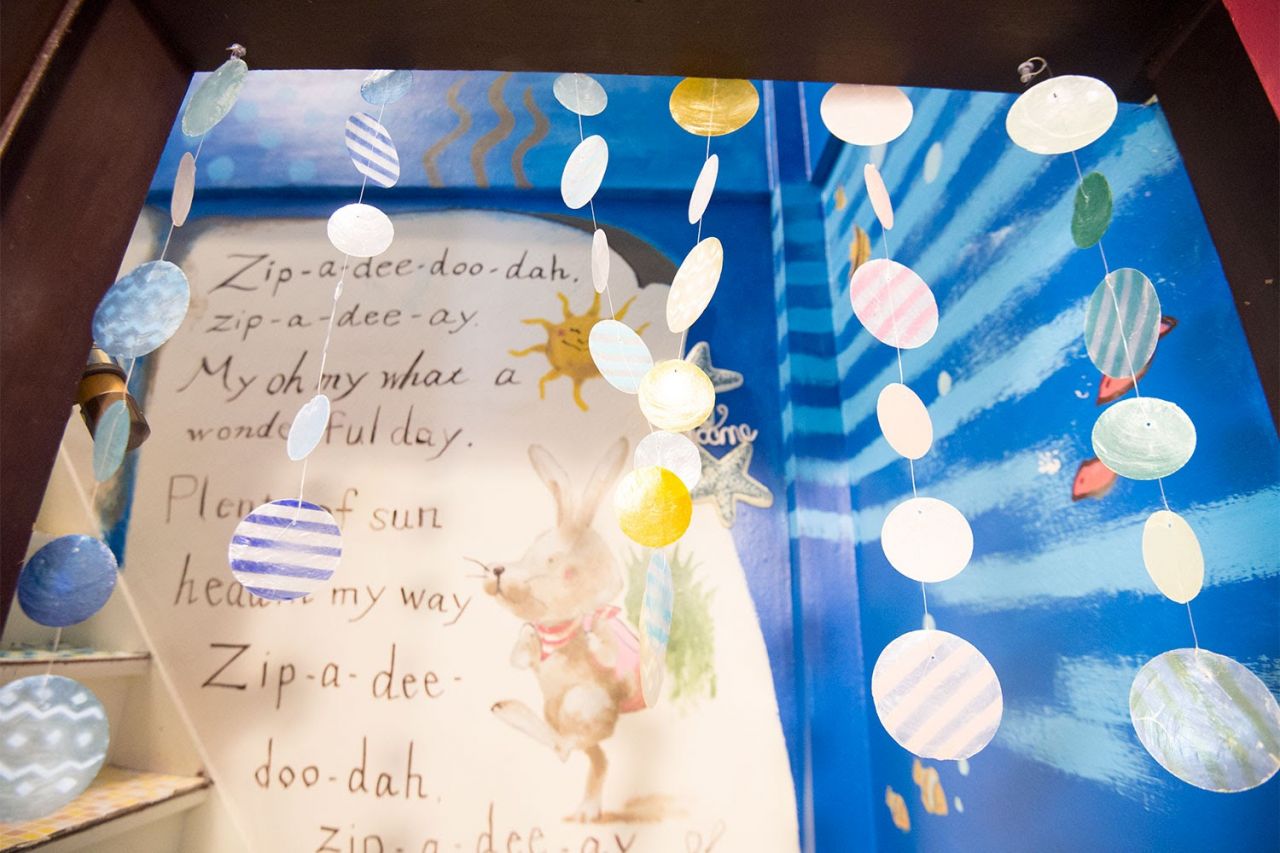 Zip-a-dee-doo-dah,
zip-a-dee-ay.
My oh my what a
wonderful day.
Plenty of sun
headin' my way
Zip-a-dee-
doo-dah,
zip-a-dee-ay